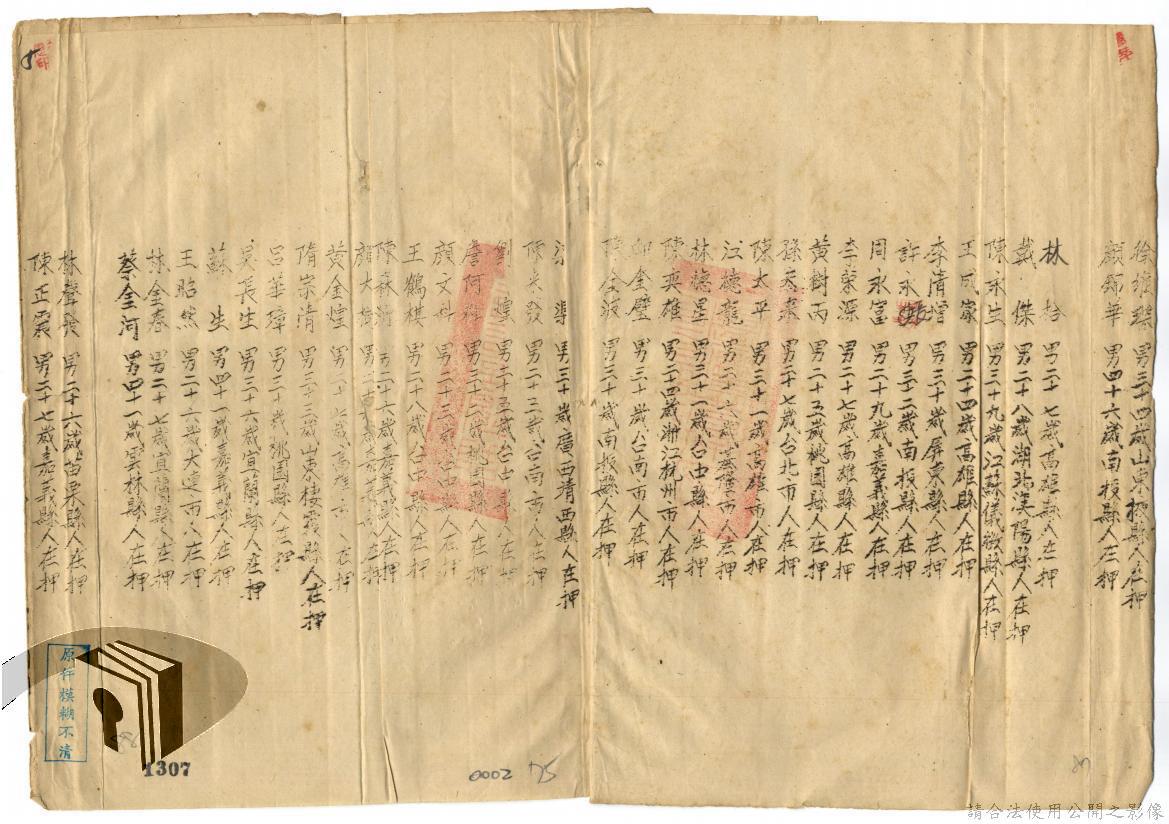 男三十四歲山東掖縣人在押
顏錦華 男四十六歲南投縣人在押
林 男二十七歲高雄縣人在押
戴 傑 男二十八歲湖北漢陽縣人在押
陳永生 男三十九歲江蘇儀徵縣人在押
王成家 男二十四歲高雄縣人在押
李清增 男三十歲屏東縣人在押
許永 男三十二歲南投縣人在押
周永富 男二十九歲嘉義縣人在押
李榮源 男二十七歲高雄縣人在押
黃樹丙 男二十五歲桃園縣人在押
孫天來 男二十七歲台北市人在押
陳太平 男三十一歲高雄市人在押
江德龍 男二十六歲基隆市人在押
林德星 男三十一歲台中縣人在押
陳奕雄 男二十四歲浙江杭州市人在押
金璧 男三十歲台南市人在押
男三十歲南投縣人在押
梁 男三十歲廣西靖西縣人在押
陳來發 男二十三歲台南市人在押
劉 煌 男二十五歲台中縣人在押
男三十二歲桃園縣人在押
顏文 男二十三歲台中縣人在押
王鶴棋 男二十八歲台中縣人在押
陳 男二十六歲嘉義縣人在押
顏大樹 嘉義人在押
黃金煌 高雄人在押
隋崇清 男三十三歲山東棲霞縣人在押
呂華璋 男三十歲桃園縣人在押
吳長生 男三十六歲宜蘭縣人在押
蘇 生 男四十一歲嘉義縣人在押
王昭然 男二十六歲大連市人在押
林金春 男二十七歲宜蘭縣人在押
蔡金河 男四十一歲雲林縣人在押
林聲發 男二十六歲苗栗縣人在押
陳正震 男二十七歲嘉義縣人在押
原件模糊不清
1307
0002
75
請合法使用公開之影像